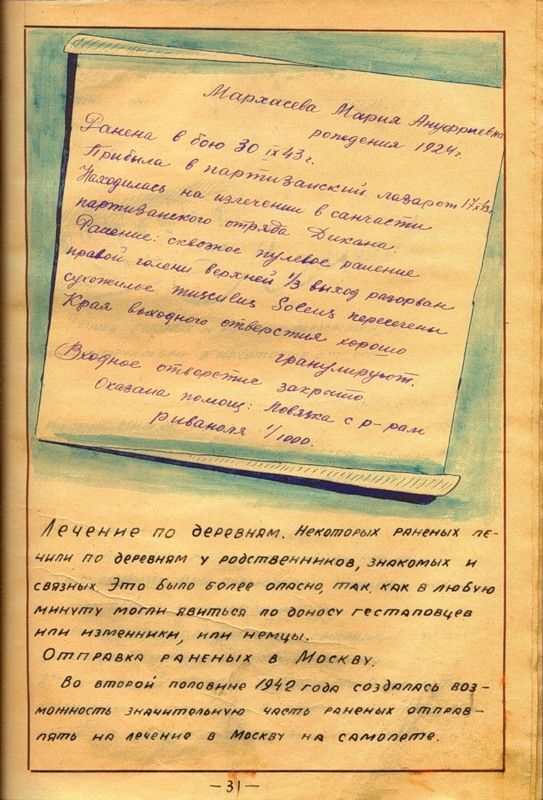 Мархасева Мария Ануфриевна
рождения 1924 г.
Ранена в бою 30 IX 43 г.
Прибыла в партизанский лазарет 17 X 43 г.
Находилась на излечении в санчасти
партизанского отряда Дикана.
Ранение: сквозное пулевое ранение
правой голени верхней 1/3 выход разорван
сухожилье пересечены
Края выходного отверстия хорошо
гранулируют.
Входное отверстие закрыто
Оказана помощ: Повязка с р-рам
риваноля 1/1000.
Лечение по деревням. Некоторых раненых ле-
чили по деревням у родственников, знакомых и
связных. Это было более опасно, так, как в любую
минуту могли явиться по доносу гестаповцев
или изменники, или немцы.
Отправка раненых в Москву.
Во второй половине 1942 года создалась воз-
можность значительную часть раненых отправ-
лять на лечение в Москву на самолете.
-31-